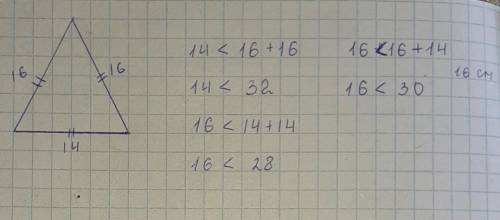 16
16
14
14 < 16 + 16
14 < 32
16 < 14 + 14
16 < 28
16 < 16 + 14
16 < 30
16 см